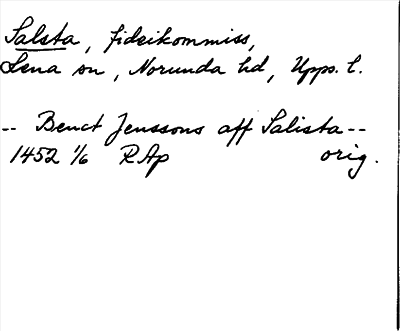 Salsta, fideikommiss,
Lena sn, Norunda hd, Upps. l.
-- Benct Jenssons aff Salista --
1452 1/6 RAp orig.